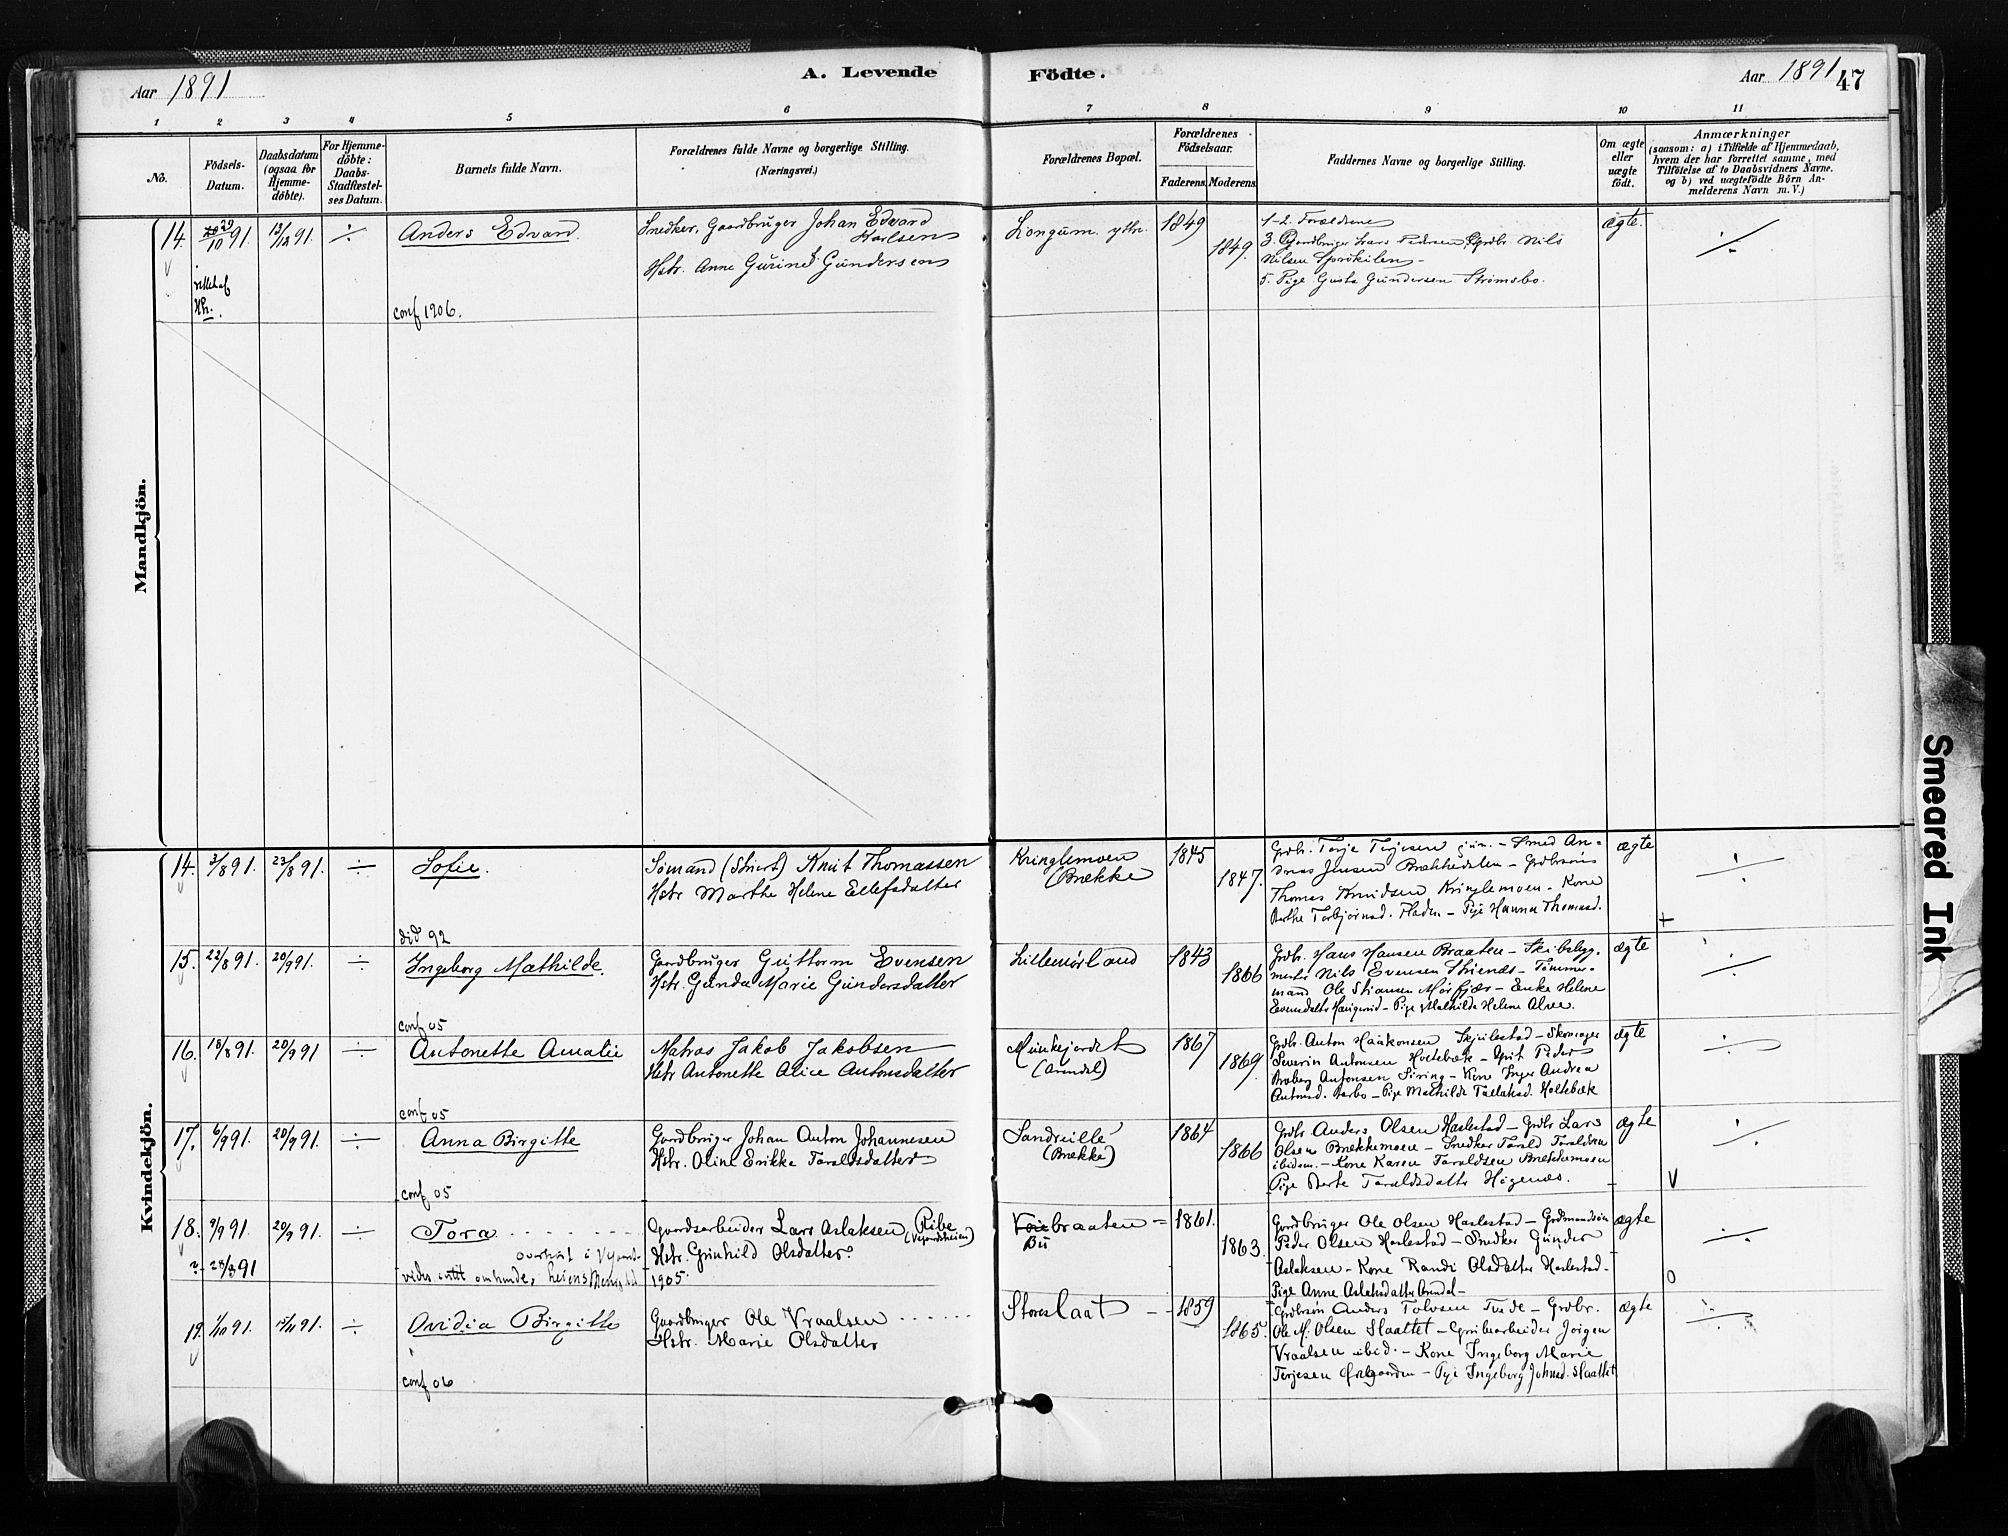 Aar 1891
A. Levende
Födte.
Aar 1891
47
1 2 3 4 5 6 7 8 9 10 11
No.
Födsels-
Datum.
Daabsdatum
(ogsaa for
Hjemme-
døbte).
For Hjemme-
döbte:
Daabs-
Stadfæstel-
ses Datum.
Barnets fulde Navn.
Forældrenes fulde Navne og borgerlige Stilling.
(Næringsvei.)
Forældrenes Bopæl.
Forældrenes
Födselsaar.
Faderens. Moderens.
Faddernes Navne og borgerlige Stilling.
Om ægte
eller
uægte
født.
Anmærkninger
(saasom: a) i Tilfælde af Hjemmedaab,
hvem der har forrettet samme, med
Tilføielse af to Daabsvidners Navne.
og b) ved uægtefödte Börn An-
melderens Navn m. V.)
Mandkjön.
14. 29/10 91. 13/12 91. ÷ Anders Edvard
conf 1906.
Snedker, Gaardbruger Johan Edvard
Karlsen
Hstr. Anne Gurine Gundersen
Longum. ytre. 1849 1849.
1-2. Forældrene
3. Gaardbruger Lars Pedersen, Grdbr. Nils
Nilsen Sprøkilen
5. Pige Gusta Gundersen Strømsbo.
ægte. ÷
Kvindekjön.
14. 3/8 91. 23/8 91. ÷ Sofie.
död 92
Sömand Knut Thomassen
Hstr Marthe Helene Ellefsdatter
Kringlemoen
(Brække
1845 1847.
Grdbr. Terje Terjesen jun. - Smed An-
dreas Jensen Brækkedalen - Grdbrsøn
Thomas Knudsen Kringlemoen - Kone
Berthe Torbjørnsd. Fladen - Pige Hanna Thomasd.
ægte ÷ +
15. 22/8 91. 20/9 91. ÷ Ingeborg Mathilde.
conf 05
Gaardbruger Guttorm Evensen
Hstr. Gunda Marie Gundersdatter
Lillemørland 1843 1866
Grdbr. Hans Hansen Braaten - Skibsbyg-
mester Nils Evensen - Tømmer-
mand Ole Stiansen Mørfjær - Enke Helene
Evensdatter - Pige Mathilde Helene Alve.
ægte ÷
16. 18/8 91. 20/9 91 ÷ Antonette Amalie
conf 05
Matros Jakob Jakobsen
Hstr Antonette Alice Antonsdatter
Munkejordet
(Arendal)
1867 1869.
Grdbr. Anton Haakonsen Skjulestad - Skomager
Severin Antonsen Holtebæk - Peder
Antonsen - Kone Inger Andrea
Antonsd. - Pige Mathilde Holtebæk
ægte ÷
17. 6/9 91. 20/9 91. ÷ Anna Birgitte
conf 05
Gaardbruger Johan Anton Johannesen
Hstr. Oline Erikke Taraldsdatter
(Brekke)
1864 1866
Grdbr Anders Olsen Haslestad - Grdbr Lars
Olsen Brækkemoen - Snedker Tarald Taraldsen
ibidem. - Kone Karen Taraldsen Brækkemoen
Pige Berte Taraldsdatter Högenæs.
ægte ÷ V
18. 9/9 91. 20/9 91. ÷ Tora
? 28/8 91
1905.
Gaardsarbeider Lars Aslaksen (Ribe
(Vegaardsheien)
Hstr. Gunhild Olsdatter.
braaten
Bü
1861. 1863.
Gaardbruger Ole Olsen Haslestad - Grdmandssön
Peder Olsen Haslestad - Snedker Gunder
Aslaksen - Kone Randi Olsdatter Haslestad -
Pige Anne Aslaksdatter Arendal -
ægte ÷ O
19. 1/10 91. 15/11 91. ÷ Ovidia Birgitte
conf 06
Gaardbruger Ole Vraalsen
Hstr. Marie Olsdatter
Storeslaat 1859 1865.
Grdbrsön Anders Tolvsen Tvede - Grdbr.
Ole M. Olsen Slaattet - Grubearbeider Jörgen
Vraalsen ibid. - Kone Ingeborg Marie
Terjesen - Pige Ingeborg Johnsd. Slaattet
ægte ÷
Smeared Ink